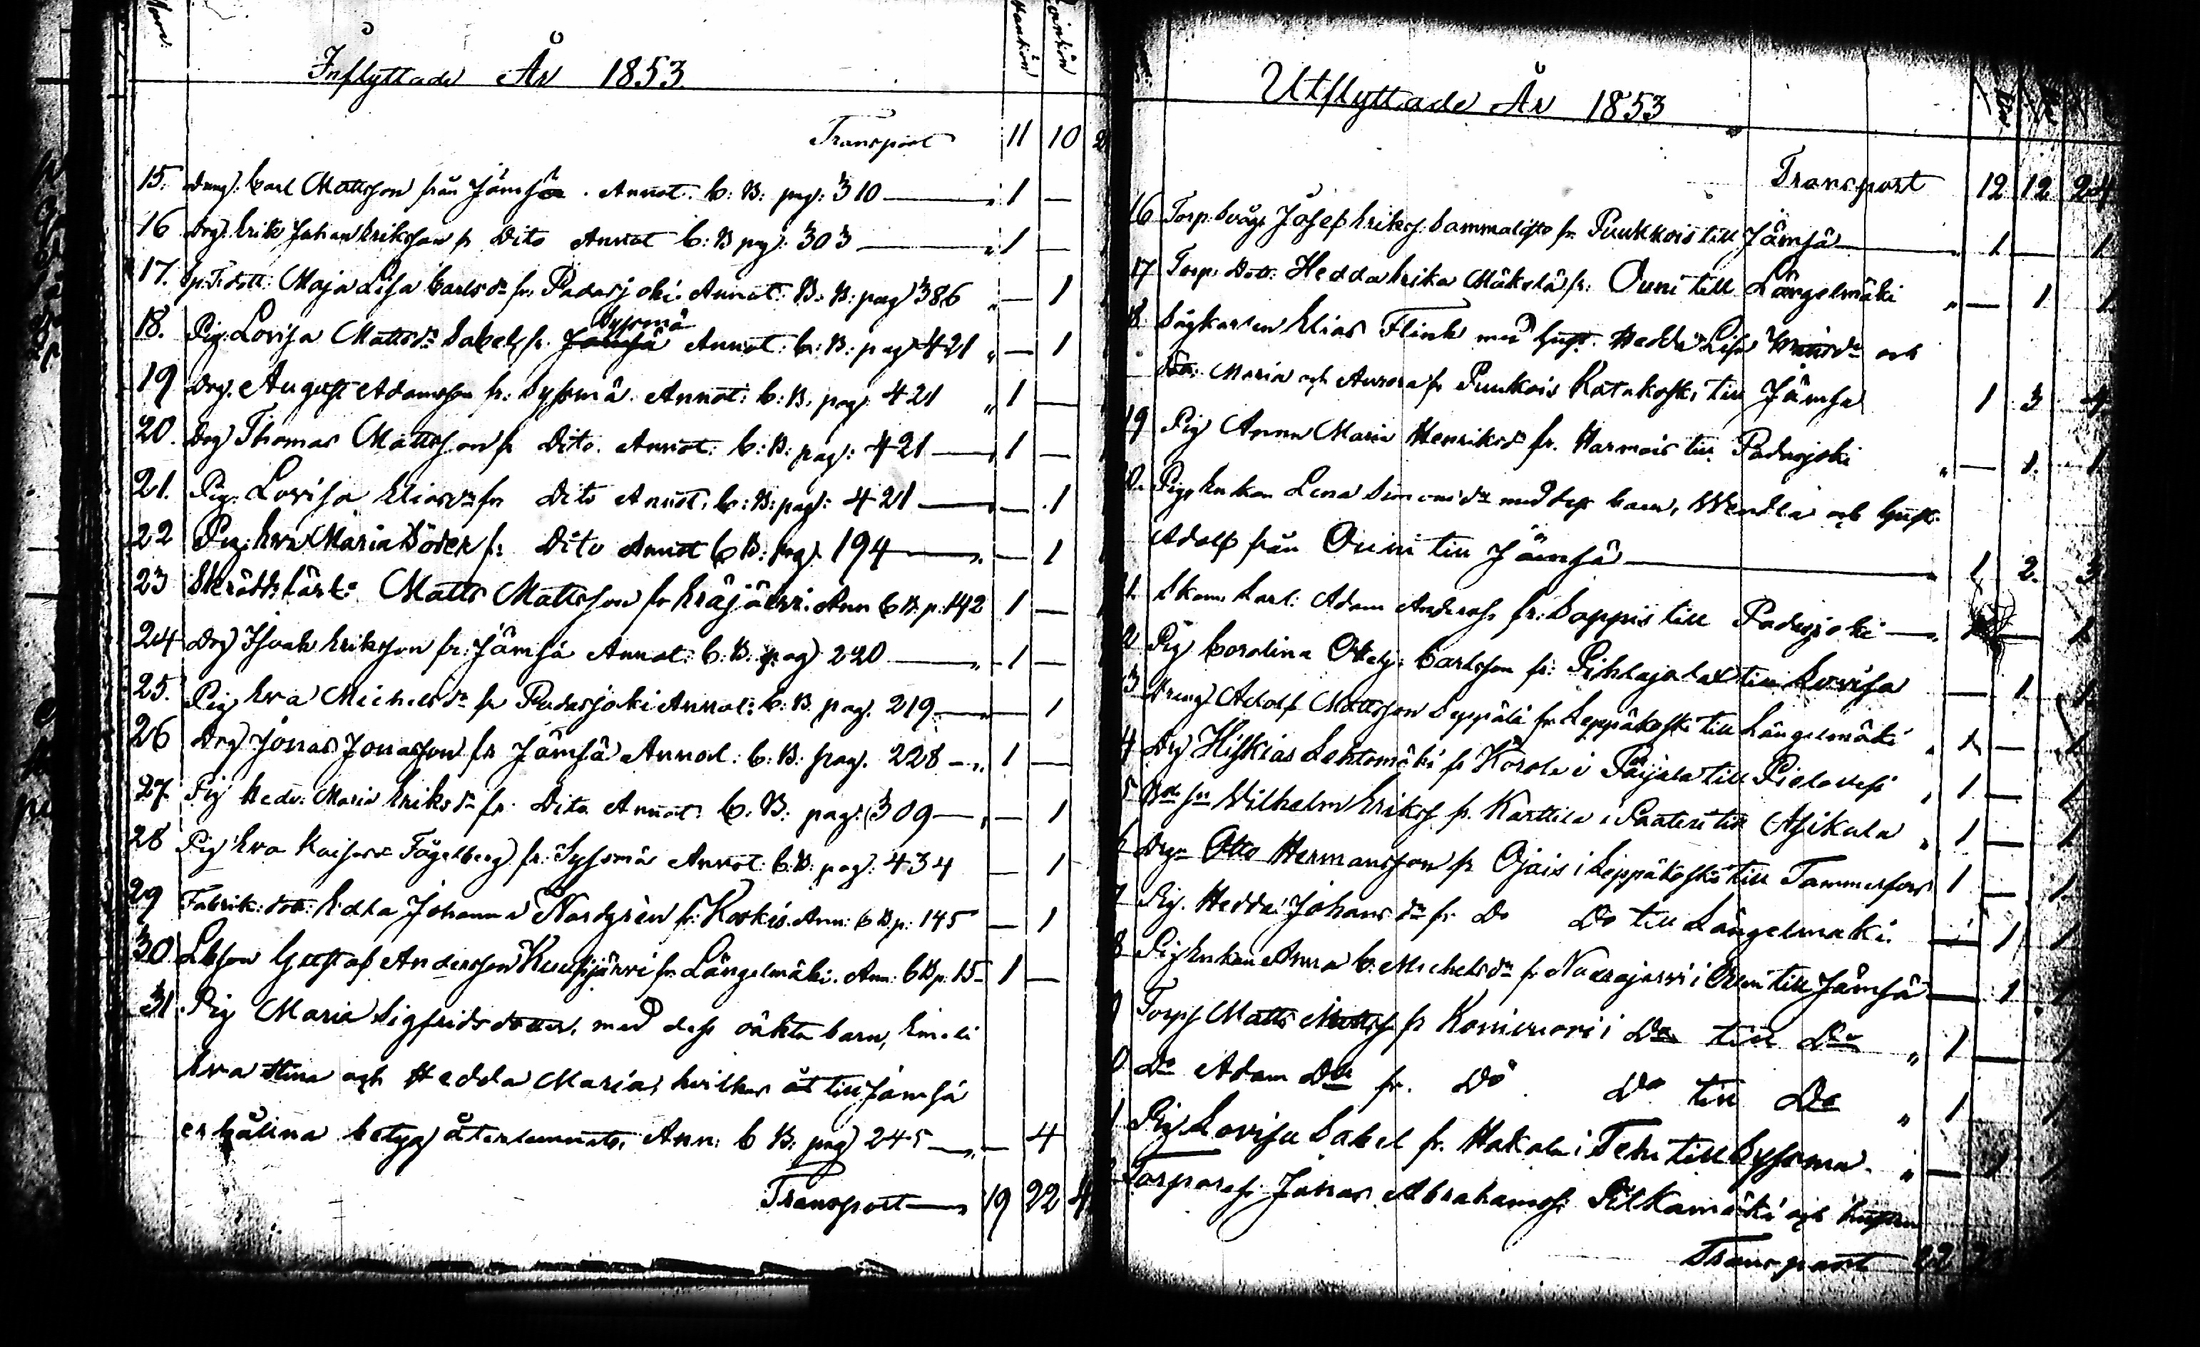 Inflyttade År 1853
Transport 11 10
15. Dräng. Carl Mattsson från Jämsä. Annot. C: B: pag: 310 — " 1 —
16 Drg. Erik Johan Eriksson fr Dito Annot C: B pag: 303 — " 1 —
17. Maja Lisa Carlsdr fr. Padasjoki. Annot: B: pag 386 " — 1
Sysmä
18. Pig. Lovisa Mattsdr Sabel fr. Jämsä Annot: C: B: pag 421 " — 1
19 Drg. August Adamsson fr. Sysmä. Annot: C: B. pag: 421 " 1 —
20. Drg Thomas Mattsson fr Dito. Annot: C: B: pag: 421 — 1 —
21. Pig. Lovisa Eliasdr fr Dito Annot. C: B: pag: 421 — 1
22 Pig. Eva Maria Söder fr. Dito Annot C B: pag 194 — " — 1
23 Skrädd.lärl: Matts Mattsson fr Eräjärvi. Ann C B. p. 142 1 —
24 Drg Isaak Eriksson fr. Jämsä Annot: C: B. pag 220 — " 1 —
25. Pig Eva Michelsdr fr Padasjoki Annot: C: B. pag. 219 — — 1
26 Drg Jonas Jonasson fr Jämsä Annot: C: B: pag. 228 — " 1 —
27. Pig Hedv: Maria Eriksdr fr. Dito Annot C. B: pag: 309 — " — 1
28 Pig Eva Kaisa Fogelberg fr. Sysmä Annot. C. B: pag: 434 — 1
29 Fabrik: dott: Edla Johanna Nordgren fr. Koskis. Ann: C B p: 145 — 1
30. Gustaf Andersson fr. Längelmäki. Ann: C B p. 15 — 1 —
31. Pig Maria Sigfridsdotter, med dess oäkta barn,
Eva Stina och Hedda Maria, hvilkas åt till Jämsä
erhållna betyg återlemnats. Ann: C B: pag 245 — " — 4
Transport — 19 22 4
Utflyttade År 1853
Transport 12 12 24
16 Torp. Josef Eriks. Sammalisto fr. Puukkois till Jämsä — 1 — 1
17 Torp. Dott: Hedda Erika Mäkelä fr. Ouni till Längelmäki " — 1 1
18 Sågkarlen Elias Flink med hust. Hedda Lisa och
Maria och Aurora fr Puukois Katakoski till Jämsä 1 3 4
19 Pig Anna Maria Henriksdr fr. Harmois till Padasjoki " — 1. 1
0. Pig. Enkan Lena Simonsdr med dess barn, Wendla och Gust.
Adolf från Ouni till Jämsä — " 1 2. 3
1. Karl: Adam Anders. fr: Sappis till Padasjoki — 1 — 1
2 Pig Carolina Carlsson fr: Pihlajalax till Lovisa — 1 1
3 Dräng Adolf Mattsson Seppälä fr Leppäkoski till Längelmäki " 1 — 1
4 Drg Hiskias Lehtomäki fr Korola i Päijälä till Pielavesi " 1 — 1
5 Wilhelm Eriks fr. Karttila i Paateri till Asikala " 1 — 1
6 Drg Otto Hermansson fr Ojais i Leppäkoski till Tammerfors 1 — 1
7 Pig. Hedda Johansdr fr Do Do till Längelmäki — 1 1
8 Pig Enkan Anna C. Michelsdr fr Naarajärvi i Ouni till Jämsä — 1 1
9 Torp Matts Matts fr Konivuori i Do till Do " 1 — 1
0 Do Adam Do fr. Do Do till Do " 1 1
1 Pig Lovisa Sabel fr. Hakala i Tehi till Sysmä " — 1 1
Torpare. Jonas Abrahams. Pitkamäki och hustru
Transport 22